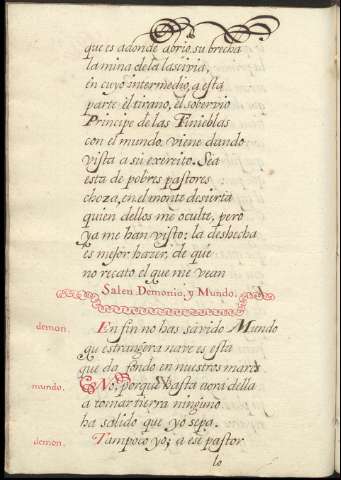 que es adonde abrio, su brecha
la mina de la lascivia,
en cuyo intermedio, a esta
parte el tirano, el sobervio
Principe de las Tinieblas
con el mundo viene dando
vista a su exercito. Sea
esta de pobres pastores
choza, en el monte desierta
quien dellos me oculte, pero
ya me han visto; la deshecha
es mejor hazer, de que
no recato el que me vean
Salen Demonio, y Mundo.
demon. En fin no has savido Mundo
qu estrangera nave es esta
que da fondo en nuestros mares
mundo. No, porque hasta aora della
a tomar tierra ninguno
ha salido que yo sepa.
demon. Tampoco yo; a ese pastor
lo